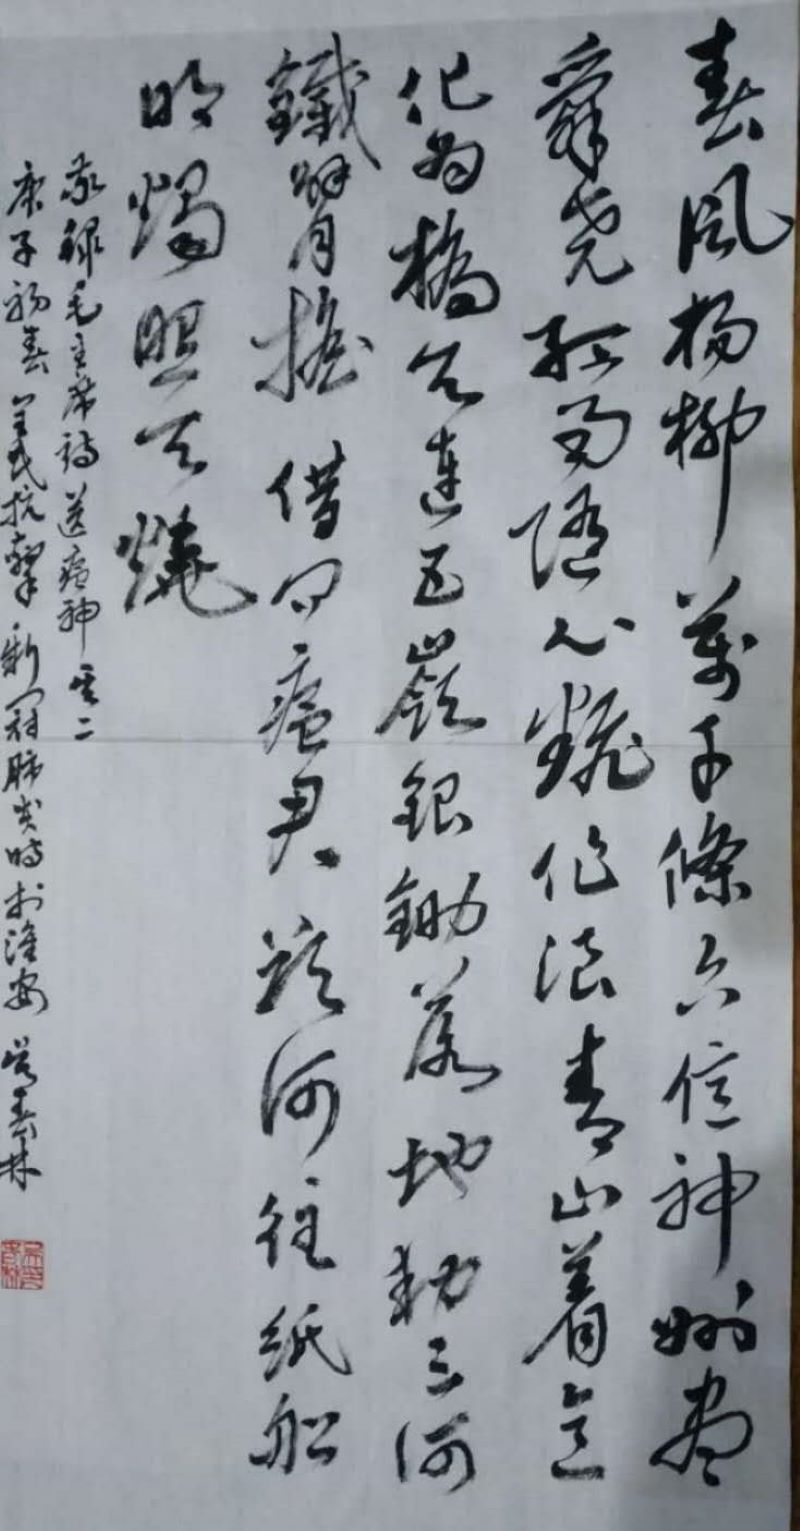 春風楊柳萬千條六億神州盡
舜堯紅雨隨心翻作浪青山着意
化為橋天連五嶺銀鋤落地動三河
鐵臂搖借問瘟君欲何往紙船
明燭照天燒
敬錄毛主席詩送瘟神其二
庚子初春全民抗擊新冠肺炎時於淮安 春林